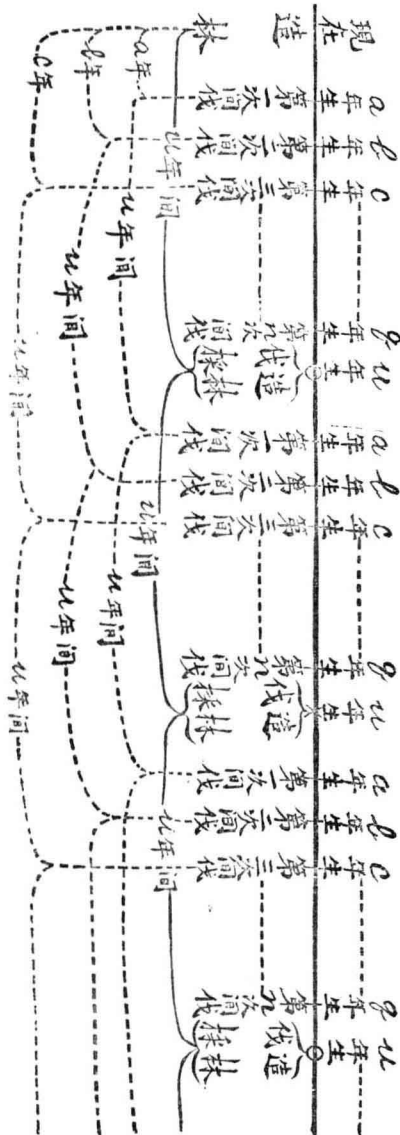 現在 造林
a年生第一次間伐
b年生第二次間伐
c年生第三次間伐
g年生第n次間伐
u年生 伐採 造林
a年生第一次間伐
b年生第二次間伐
c年生第三次間伐
g年生第n次間伐
u年生 伐採 造林
a年生第一次間伐
b年生第二次間伐
c年生第三次間伐
g年生第n次間伐
u年生 伐採 造林
u年间
u年间
u年间
a年
u年间
u年间
b年
u年间
u年间
c年
u年间
u年间